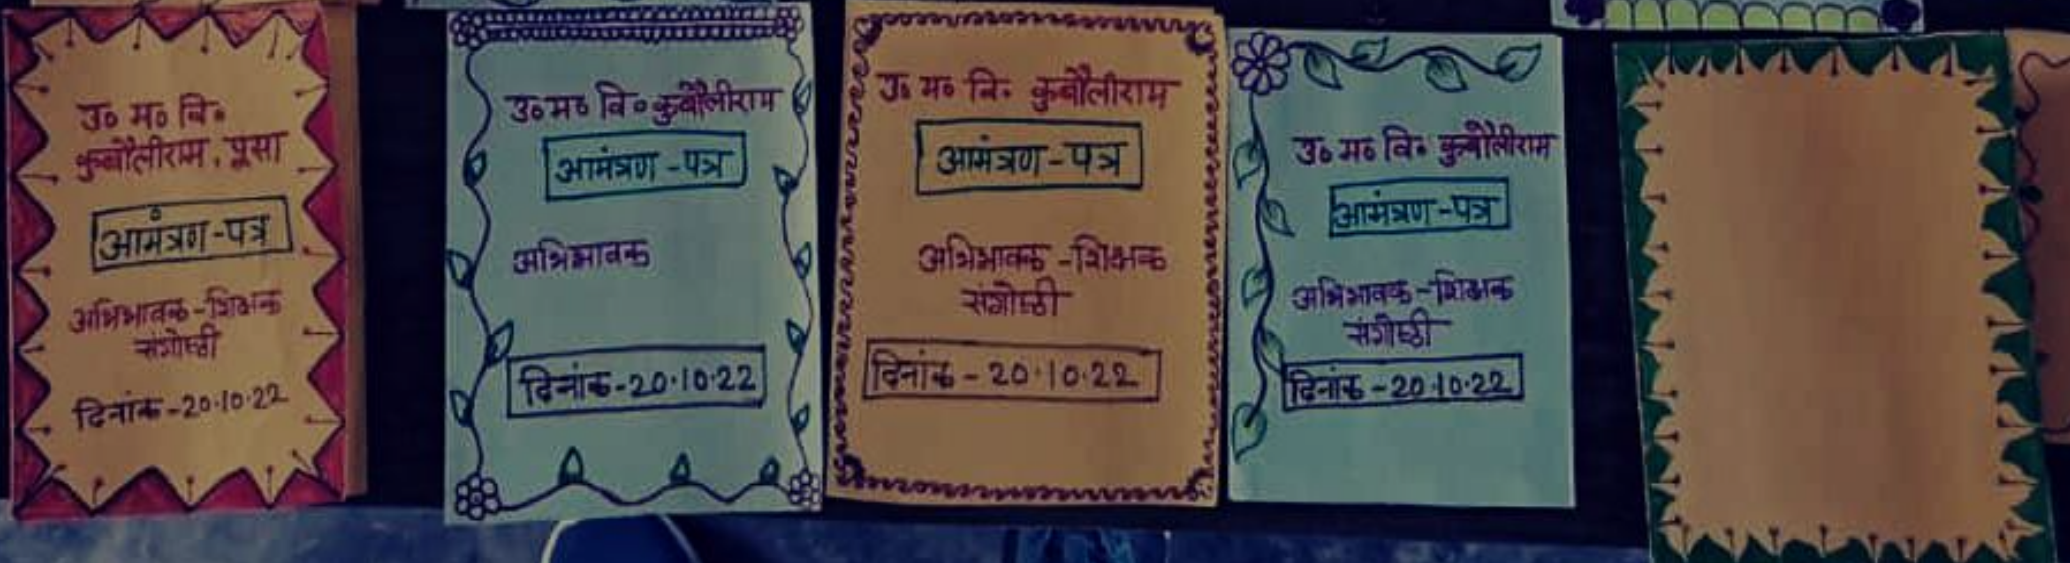 उ० म० वि०
कुबौलीराम, पूसा
आमंत्रण-पत्र
अभिभावक-शिक्षक
संगोष्ठी
दिनांक-20.10.22
उ० म० वि० कुबौलीराम
आमंत्रण-पत्र
अभिभावक
दिनांक-20.10.22
उ० म० वि० कुबौलीराम
आमंत्रण-पत्र
अभिभावक-शिक्षक
संगोष्ठी
दिनांक-20.10.22
उ० म० वि० कुबौलीराम
आमंत्रण-पत्र
अभिभावक-शिक्षक
संगोष्ठी
दिनांक-20.10.22